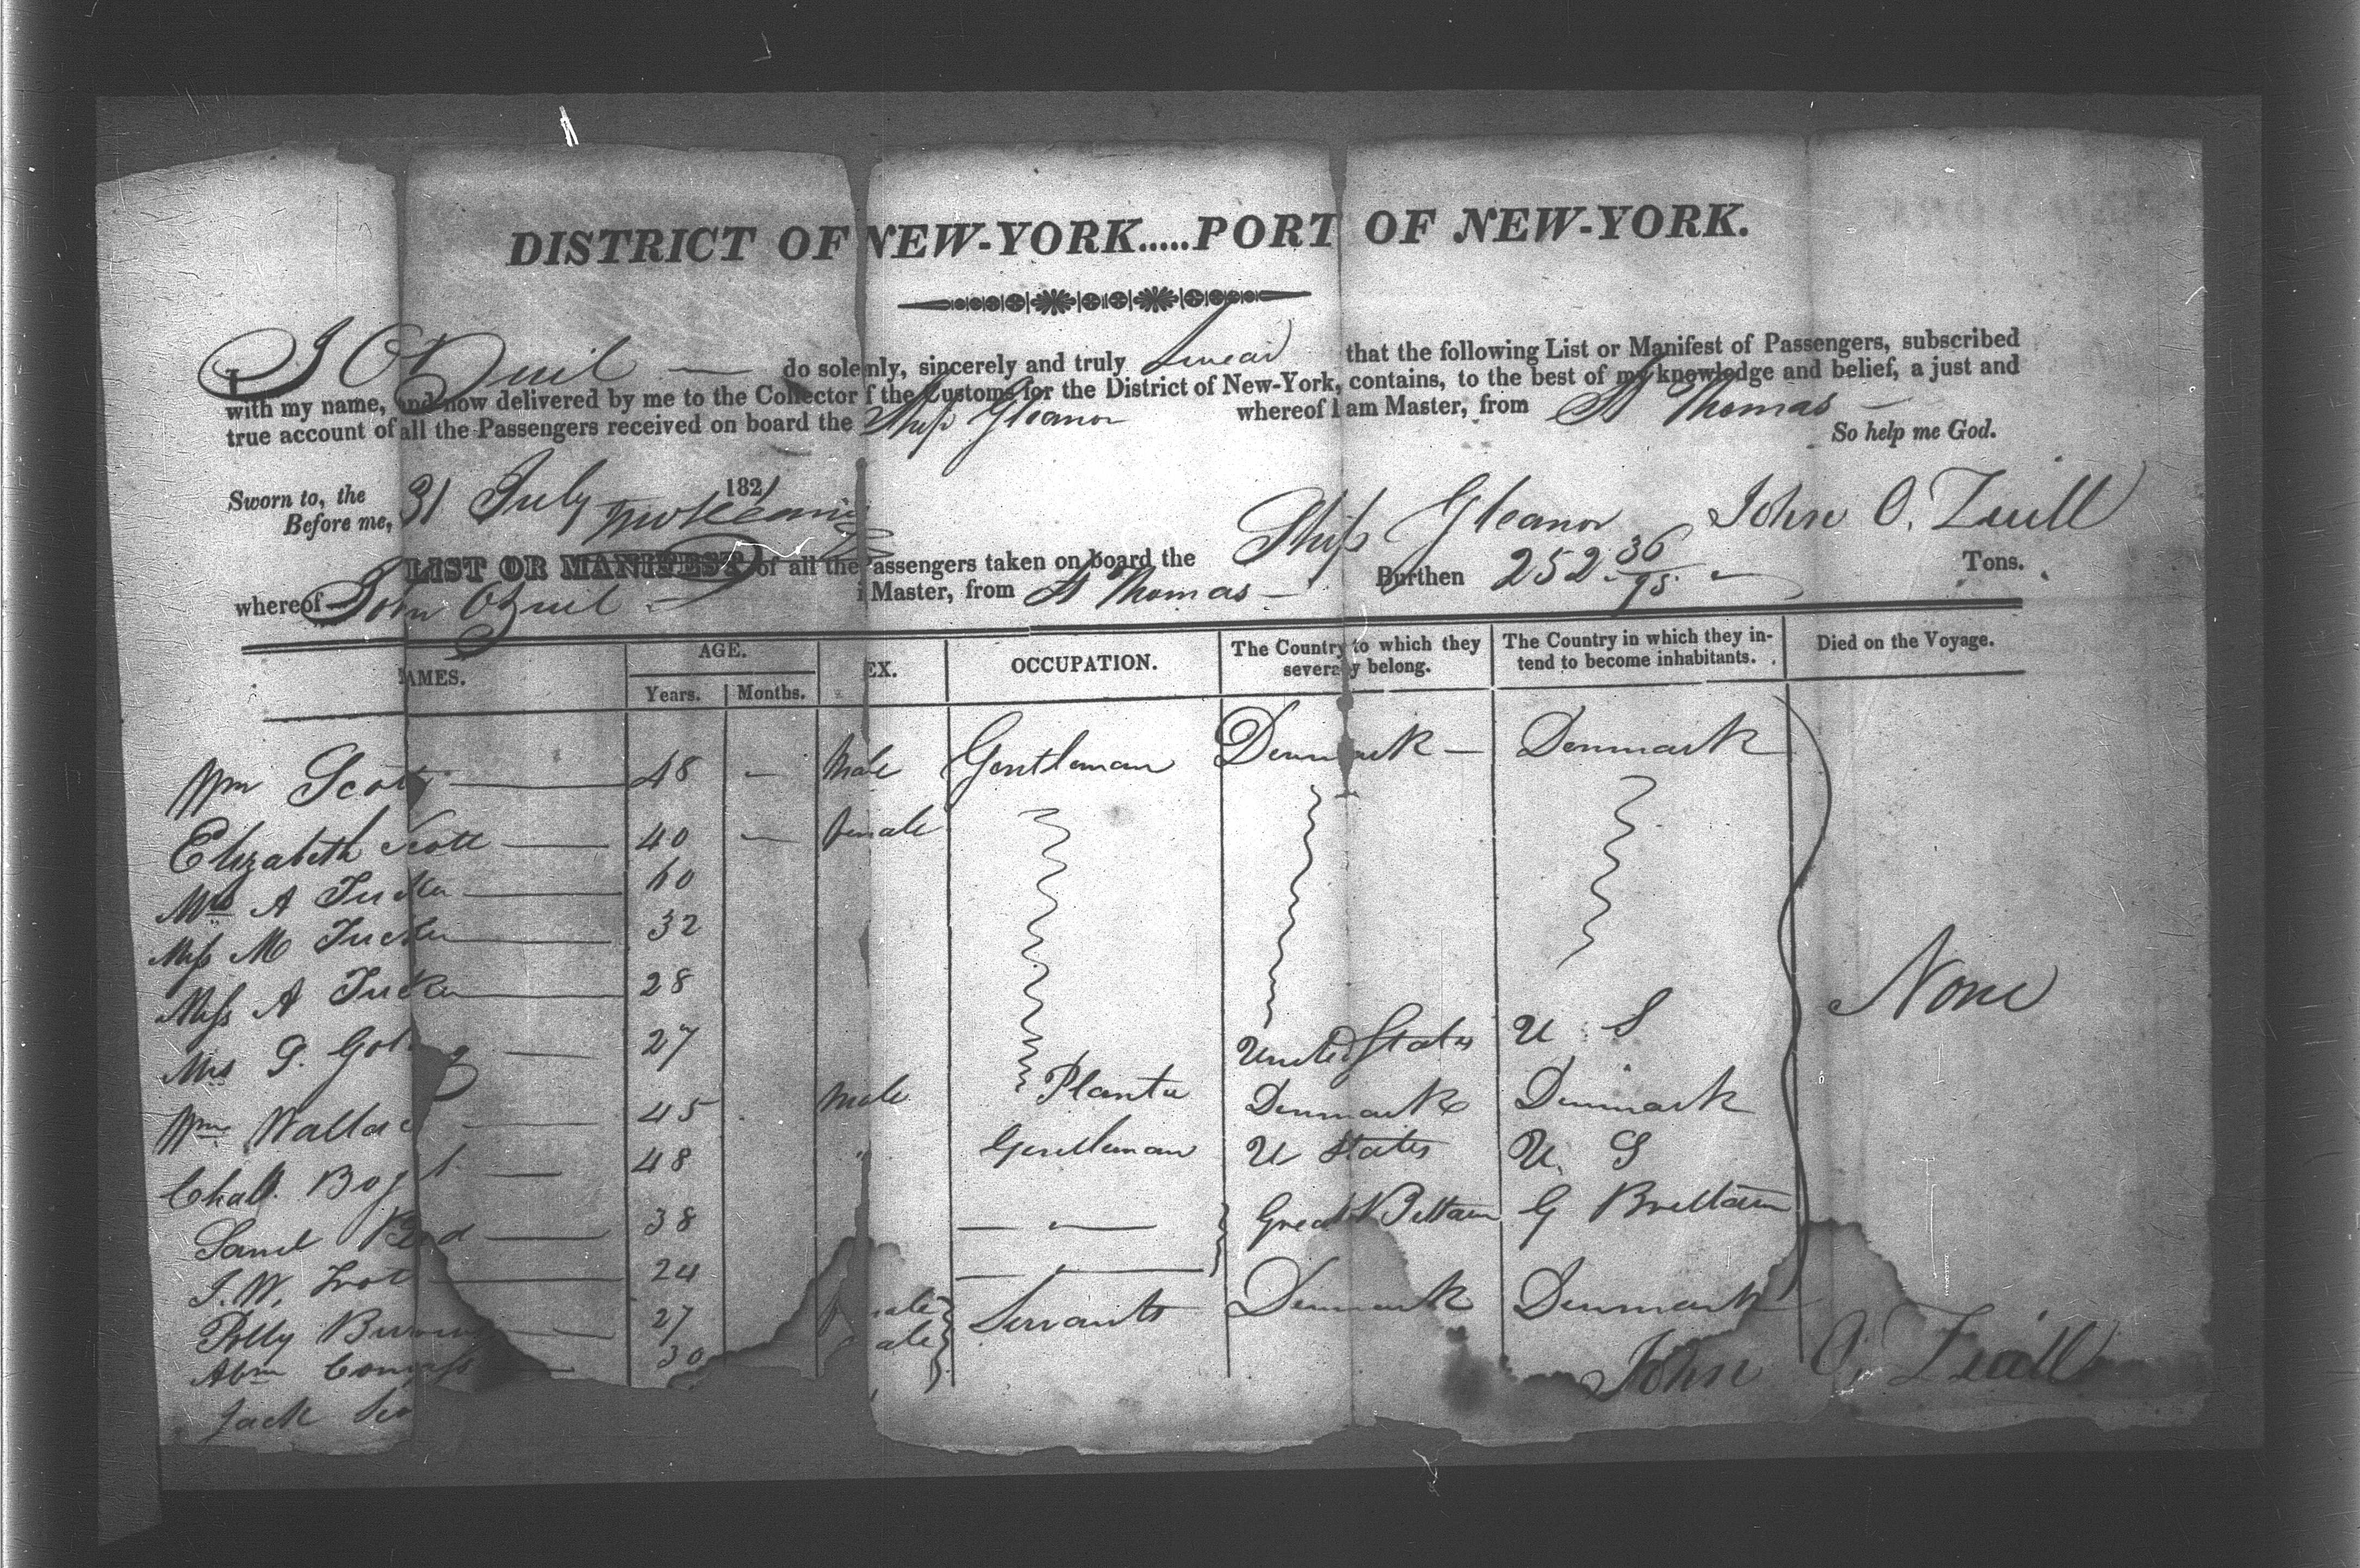 DISTRICT OF NEW-YORK.....PORT OF NEW-YORK.
I J O Zuil — do solemnly, sincerely and truly swear that the following List or Manifest of Passengers, subscribed
with my name, and now delivered by me to the Collector of the Customs for the District of New-York, contains, to the best of my knowledge and belief, a just and
true account of all the Passengers received on board the Ship Gleanor whereof I am Master, from St Thomas —
So help me God.
Sworn to, the 31 July 1821
Before me,
John O. Zuill
LIST OR MANIFEST of all the Passengers taken on board the Ship Gleanor
whereof John O Zuil — is Master, from St Thomas — Burthen 252 36/95 — Tons.
NAMES. AGE. Years. Months. SEX. OCCUPATION. The Country to which they severally belong. The Country in which they intend to become inhabitants. Died on the Voyage.
Wm Scott — 48 — Male Gentleman Denmark — Denmark
Elizabeth Scott — 40 — female
Mrs A Tucker — 60
Miss M Tucker — 32
Miss A Tucker — 28
None
Mrs G. — 27 United States U S
Wm Wallac — 45 male Planter Denmark Denmark
Chas. — 48 " Gentleman U States U. S
Saml — 38 — " — Great Brittain G Brittain
J. W. Trot — 24 — " —
Polly — 27 female Servants Denmark Denmark
Abm — 30 male
Jack
John O. Zuill